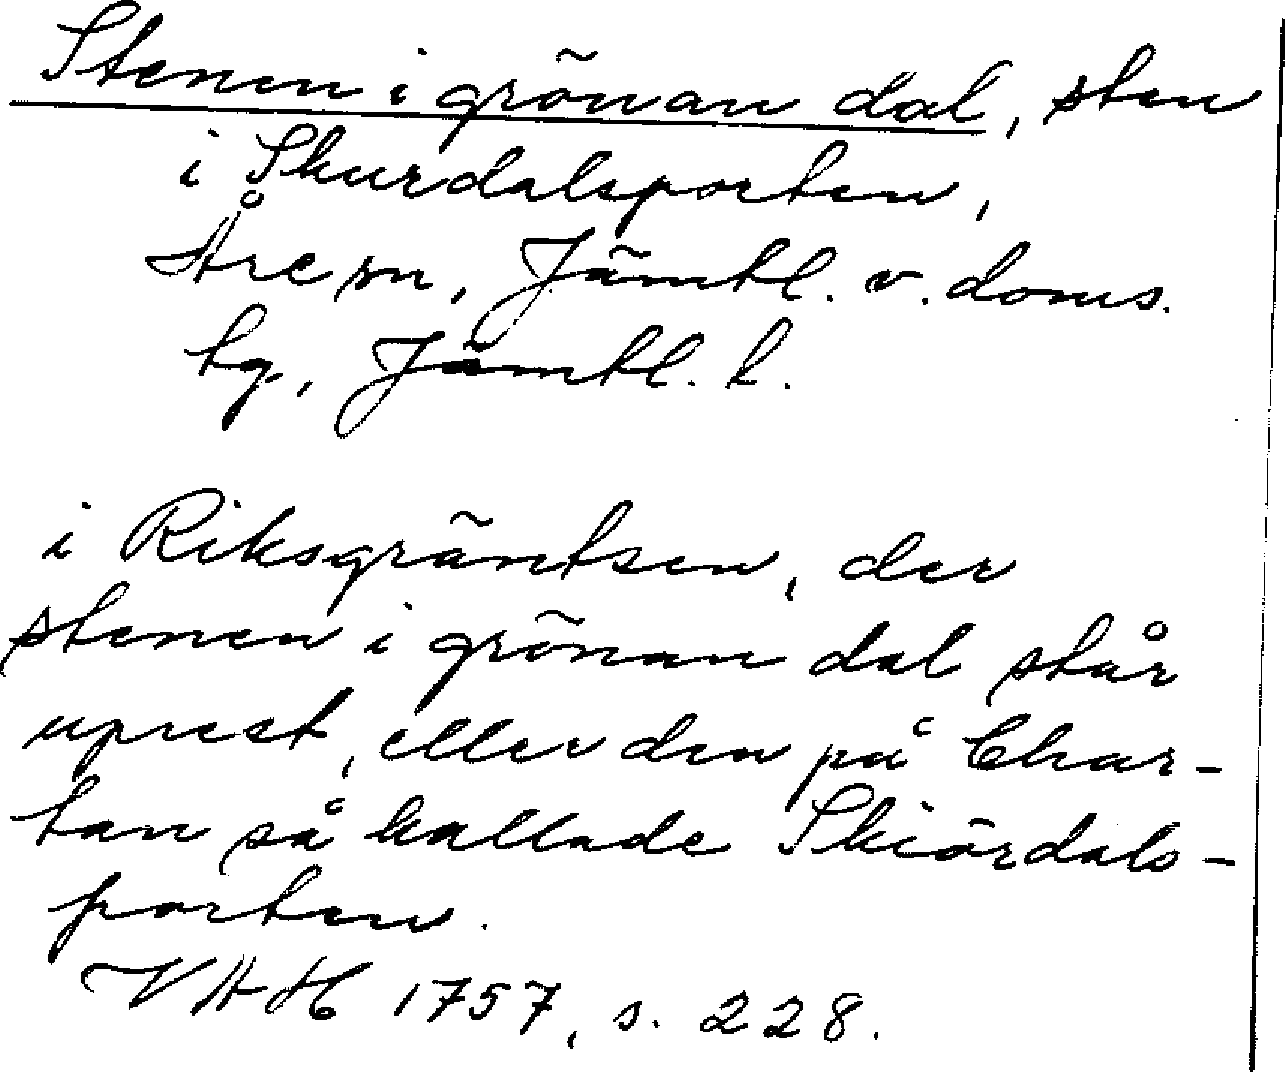 Stenen i grönan dal, sten
i Skurdalsporten,
Åre sn, Jämtl. v. doms.
tg, Jämtl. l.
i Riksgräntsen, der
stenen i grönan dal står
uprest, eller den på Char-
tan så kallade Skiördals-
porten.
VAH 1757, s. 228.